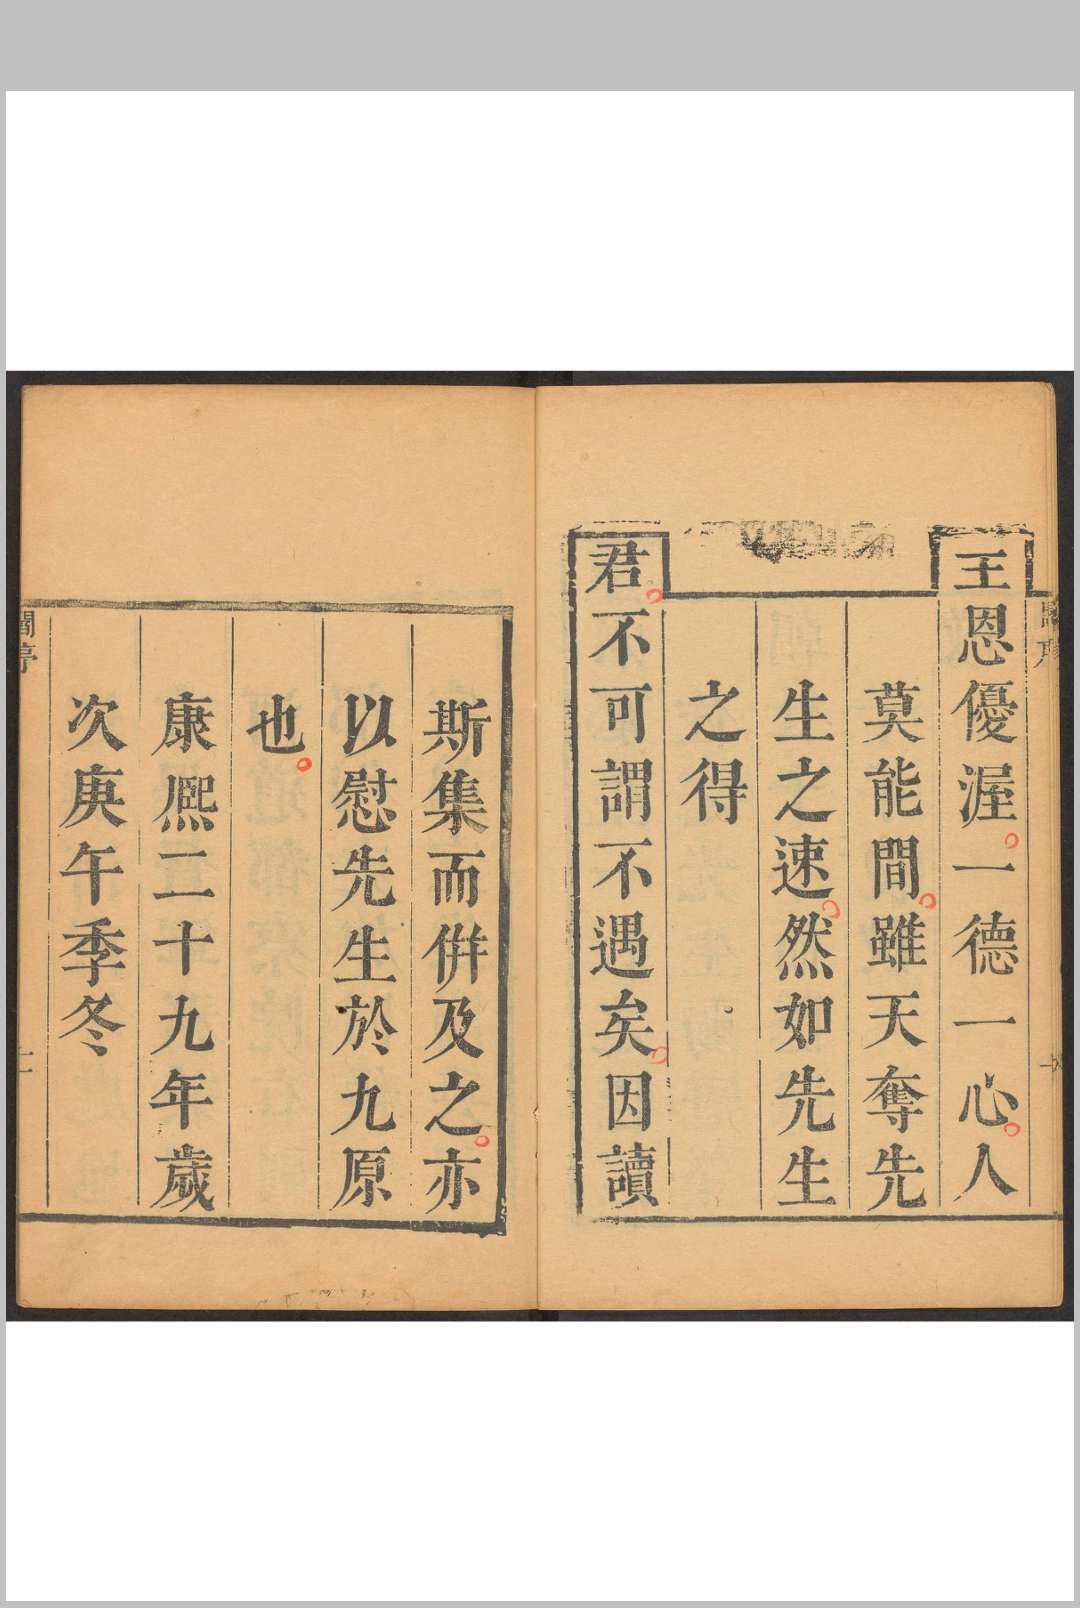 王恩優渥一德一心人
莫能間雖天奪先
生之速然如先生
之得
君不可謂不遇矣因讀
斯集而倂及之亦
以慰先生於九原
也
康熙二十九年歲
次庚午季冬